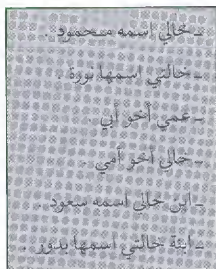 - خالي اسمه محمود .
- خالتي اسمها نورة .
- عمي أخو أبي .
- خالي أخو أمي .
- ابن خالي اسمه سعود .
- ابنة خالتي اسمها بدور .